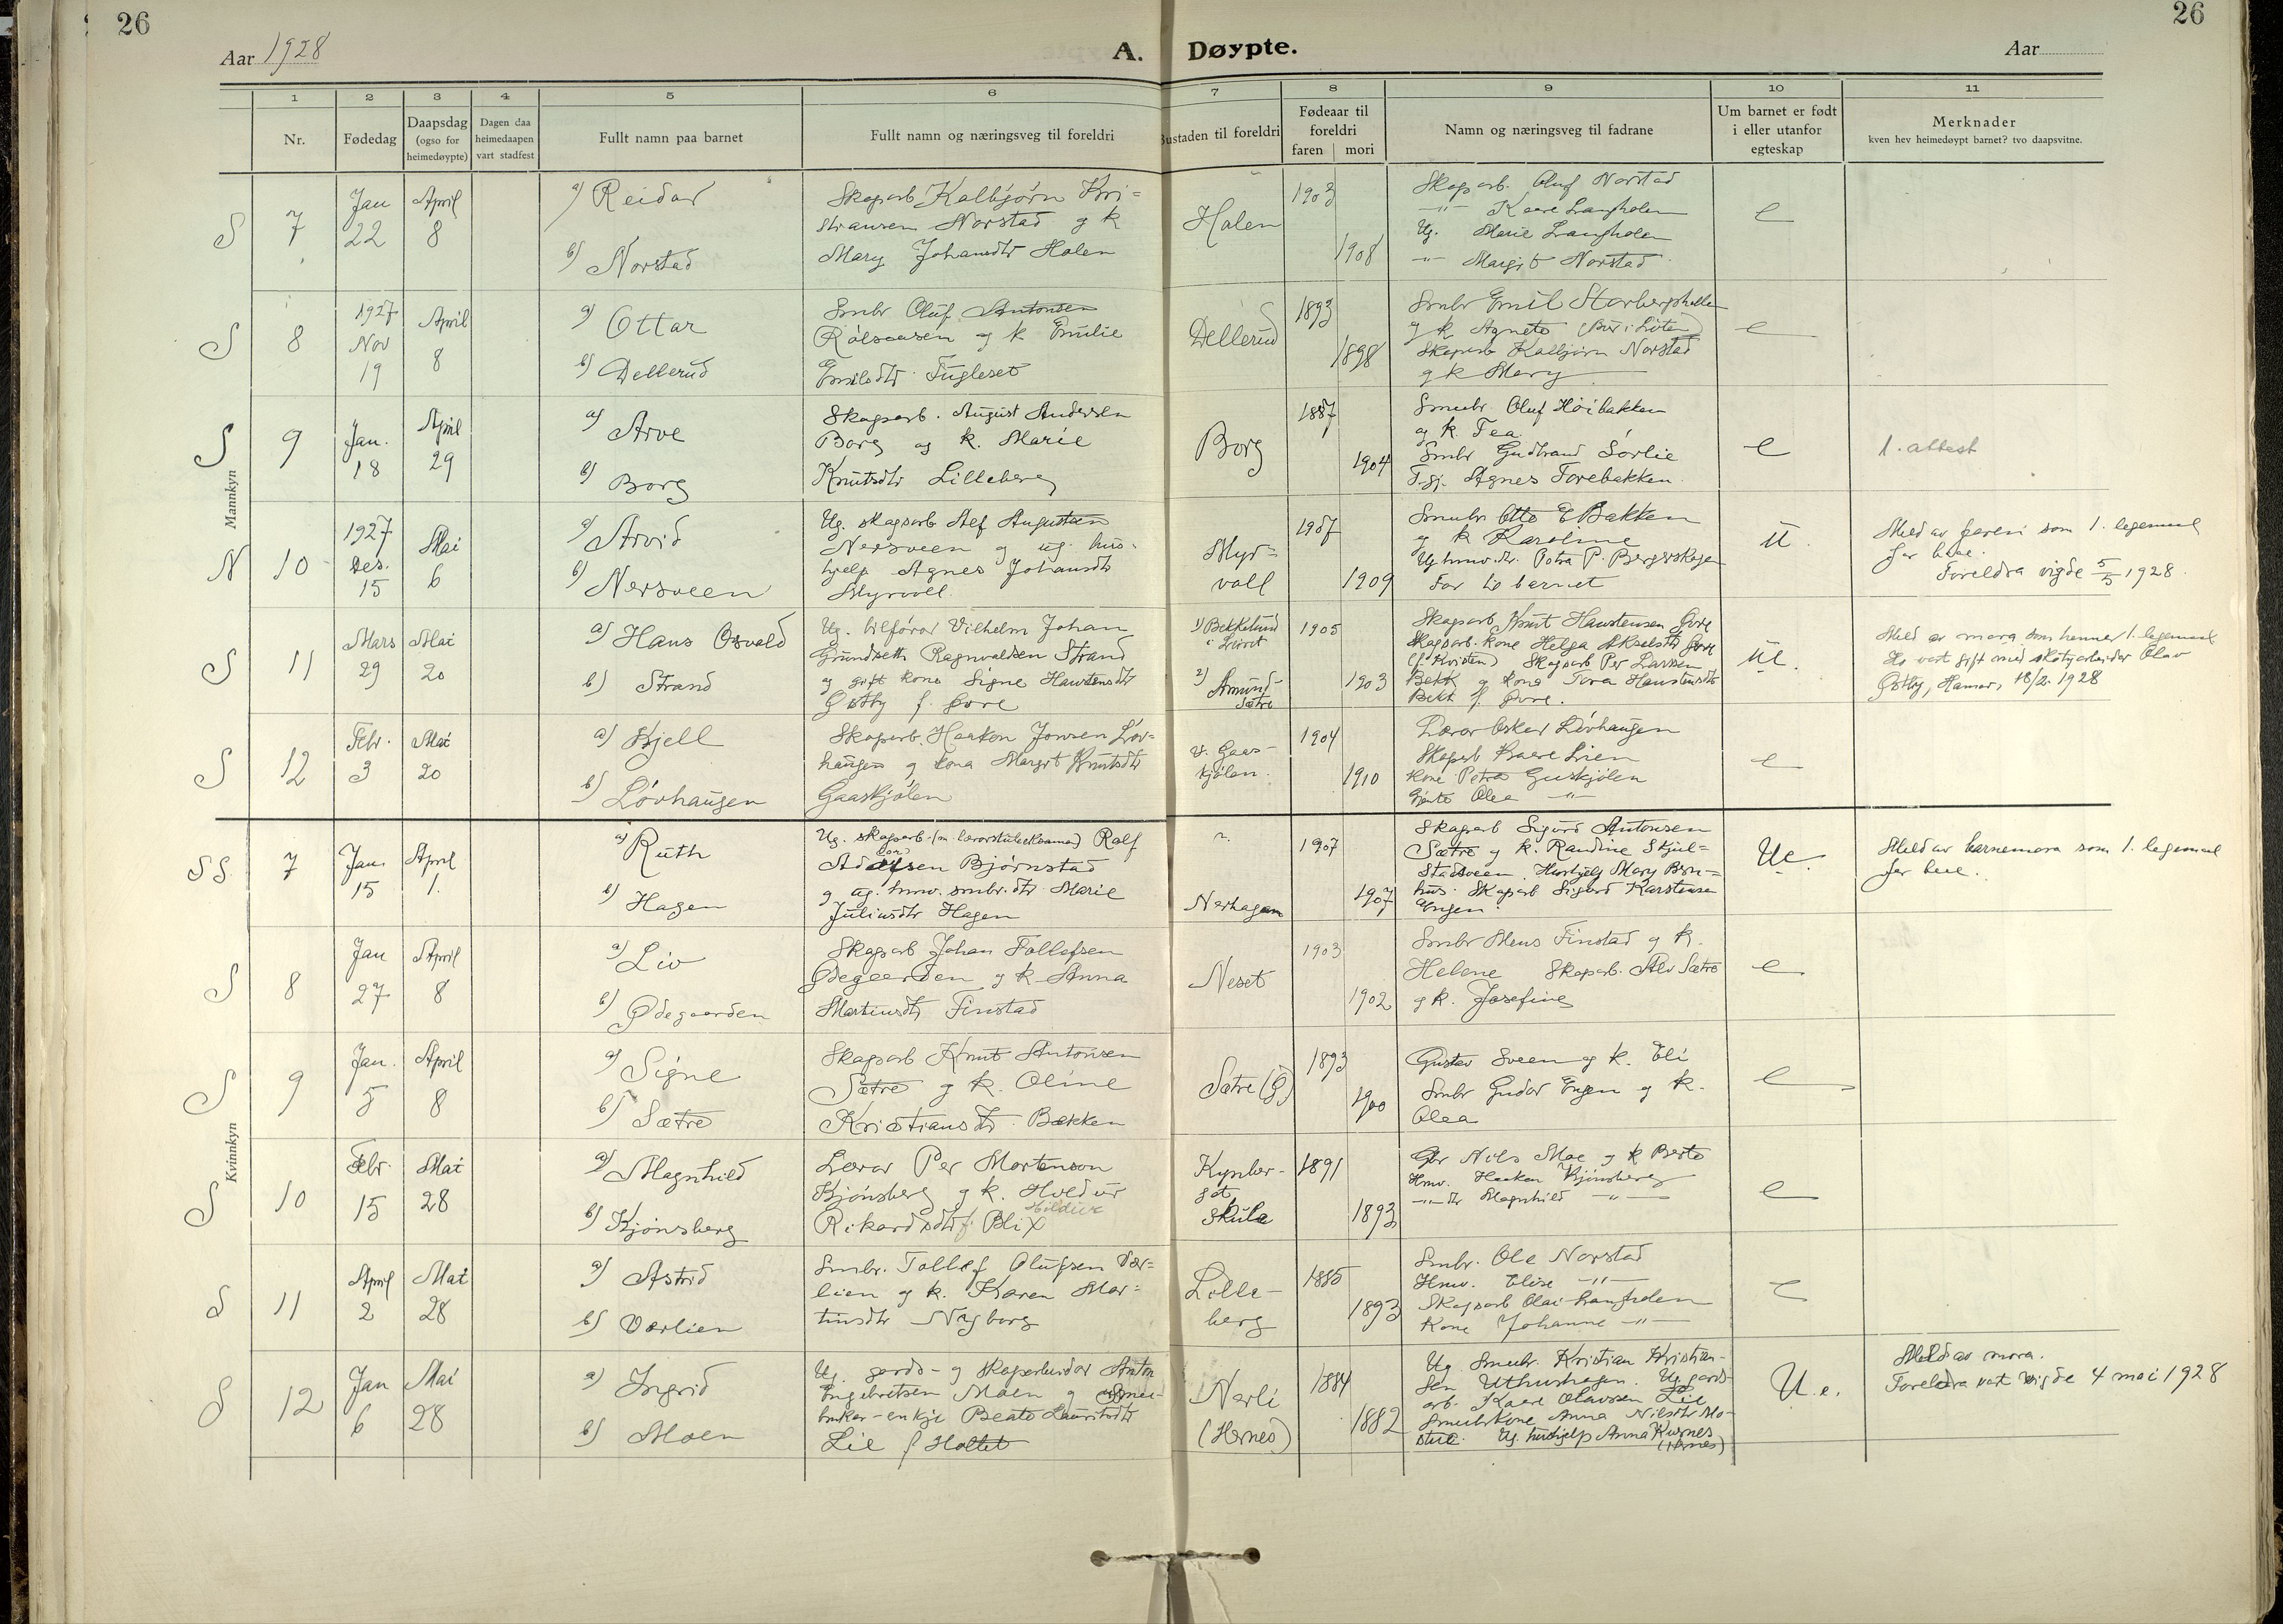 26
26
Aar 1928
A. Døypte.
Aar
1
2
3
4
5
6
7
8
9
10
11
Nr.
Fødedag
Daapsdag (ogso for heimedøypte)
Dagen daa heimedaapen vart stadfest
Fullt namn paa barnet
Fullt namn og næringsveg til foreldri
Bustaden til foreldri
Fødeaar til foreldri
faren | mori
Namn og næringsveg til fadrane
Um barnet er født i eller utanfor egteskap
Merknader
kven hev heimedøypt barnet? tvo daapsvitne.
Mannkyn
S 7 Jan 22 April 8
a) Reidar
b) Norstad
Skogsarb. Kalbjørn Kri=
stiansen Norstad og k
Mary Johansdtr Holen
Holen
1903
1908
Skogsarb. Oluf Norstad
-"- Kaare Langholen
Ug. Marie Langholen
-"- Margit Norstad
e
S 8 1927 Nov 19 April 8
a) Ottar
b) Dellerud
Smbr Oluf Antonsen
og k Emilie
Emilsdtr Fugleset
Dellerud
1893
1898
Smbr Emil Storbergshollen
og k Agnete (Bur i Løten)
Skogsarb Kalbjørn Norstad
og k Mary
e
S 9 Jan. 18 April 29
a) Arve
b) Borg
Skogsarb. August Andersen
Borg og k. Marie
Knutsdtr Lilleberg
Borg
1887
1904
Smbr Oluf Høibakken
og k. Tea
Smbr Gudbrand Sørlie
T.gj. Agnes Forebakken
e
1. attest
N 10 1927 Des. 15 Mai 6
a) Arvid
b) Nersveen
Ug. skogsarb Alf Augustsen
Nersveen og ug. hus-
hjelp Agnes Johansdtr
Myrvoll
Myr=
voll
1907
1909
Smbr Otto E Bakken
og k Karoline
Ug hmv.dtr. Petra P. Bergerskogen
Far til barnet
U.
Meld av faren som 1. legemaal
for bae.
Foreldra vigde 5/5 1928.
S 11 Mars 29 Mai 20
a) Hans Osvald
b) Strand
Ug. bilførar Vilhelm Johan
Grundseth Ragnvaldsen Strand
og gift kona Signe Haustensdtr
Østby f. Øvre
1) Bekkelund
i Leiret
2) Amund-
Sætre
1905
1903
Skogsarb Knut Haustensen Øvre
Skogsarb. kone Helga Akselsdtr Øvre
(f. Kvisten) Skogsarb Per Larssen
Bekk og kona Tora Haustensdtr
Bekk f. Øvre.
Ue.
Meld av mora som hennar 1. legemaal
Ho vart gift med skotyarbeider Olav
Østby, Hamar, 18/2. 1928
S 12 Febr. 3 Mai 20
a) Kjell
b) Løvhaugen
Skogsarb. Haakon Jonsen Løv=
haugen og kona Margit Knutsdtr
Gaaskjølen
v. Gaas-
kjølen.
1904
1910
Lærar Oskar Løvhaugen
Skogsarb Kaare Lien
Kone Petra Gaaskjølen
Gjente Olea -"-
e
Kvinnkyn
SS. 7 Jan. 15 April 1.
a) Ruth
b) Hagen
Ug. skogsarb. Rolf
Bjørnstad
og ug. hmv. smbr.dtr Marie
Juliusdtr Hagen
Nerhagen
1907
1907
Skogsarb Sigurd Antonsen
Sætre og k. Randine Skjul=
stadsveen. Hushjelp Mary Bron=
hus. Skogsarb Sigurd Karstensen
Engen.
Ue.
Meld av barnemora som 1. legemaal
for bae.
S 8 Jan 27 April 8
a) Liv
b) Ødegaarden
Skogsarb Johan Tollefsen
Ødegaarden og k Anna
Martinsdtr Finstad
Neset
1903
1902
Smbr Mons Finstad og k.
Helene Skogsarb. Alv Sætre
og k. Josefine
e
S 9 Jan. 5 April 8
a) Signe
b) Sætre
Skogsarb Knut Antonsen
Sætre og k. Oline
Kristiansdtr Bakken
Sætre (Ø)
1893
1900
Gustav Sveen og k. Eli
Smbr Gudar Engen og k.
Olea
e
S 10 Febr. 15 Mai 28
a) Magnhild
b) Kjønsberg
Lærar Per Mortenson
Kjønsberg og k. Hvedur
Hildur
Rikardsdtr f. Blix
Kynber-
get
skule
1891
1893
Gbr Nils Moe og k Berte
Hmv. Haakon Kjønsberg
-"- dtr Magnhild -"-
e
S 11 April 2 Mai 28
a) Astrid
b) Værlien
Smbr. Tollef Olufsen Vær=
lien og k. Karen Mar=
tinsdtr Nyborg
Lille-
berg
1885
1893
Smbr. Ole Norstad
Hmv. Elise -"-
Skogsarb Olai Langholen
Kone Johanne -"-
e
S 12 Jan 6 Mai 28
a) Ingrid
b) Moen
Ug. gards- og skogarbeidar Anton
Engebretsen Moen og smaa-
brukar-enkje Beate Lauritsdtr
Lie f Holtet
Nerli
(Hernes)
1884
1882
Ug Smbr. Kristian Kristian-
sen Uthushagen. Ug gards-
arb. Kaare Olavssen Lie
Smbrkone Anna Nilsdtr Mo-
stue. Ug. hushjelp Anna Kurnes
(Hernes)
U.e.
Meld av mora.
Foreldra vart vigde 4 mai 1928